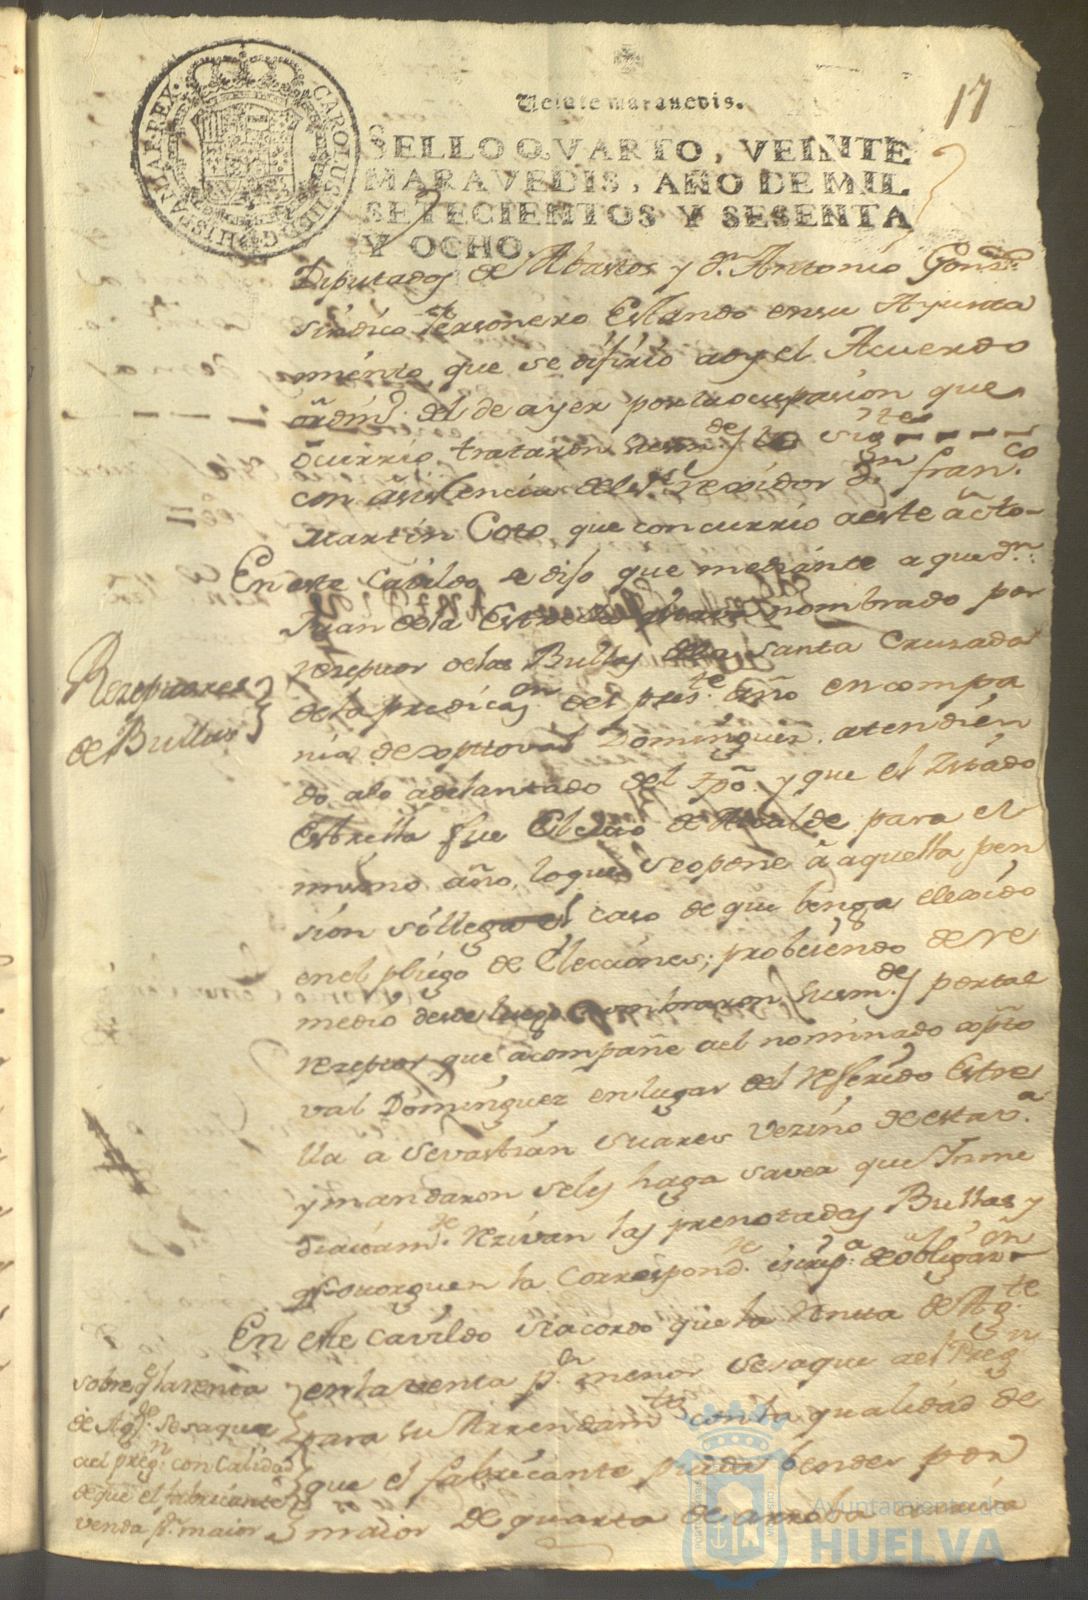 17
Veinte maravedis.
SELLO QVARTO, VEINTE
MARAVEDIS, AÑO DE MIL
SETECIENTOS Y SESENTA
Y OCHO.
CAROLUS III D G HISPANIAR REX
Diputados de Abastos y Dn. Antonio Gonz.
sindico Personero Estando en su Ayunta
miento, que se difirio a oy el Acuerdo
ordin.º del de ayer por la ocupasion que
ocurrio trataron sus mdes lo sigte
con asistencia del Sr rexidor Dn. franco.
Martin Coto, que concurrio a este acto
En este Cavildo se dijo que mediante a que Dn.
Juan de la Estrella nombrado por
rezeptor de las Bullas de la Santa Cruzada
de la predicaon. del preste. año en compa
nia de xptoval Dominguez. atendien
do a lo adelantado del tpo. y que el zitado
Estrella fue Electo de Alcalde para el
mismo año, lo que se opone â aquella pen
sion si llega el caso de que benga elexido
en el pliego de Elecciones; probeiendo de re
medio desde luego nombraron sus mdes por tal
rezeptor que acompañe al nominado xpto
val Dominguez en lugar del referido Estre
lla a Sevastian Suares vezino de esta va.
y mandaron se les haga saver que Inme
diatamte. rezivan las prenotadas Bullas y
otorguen la Correspondte. escrip.a de obligaon
Rezeptores
de Bullas
En este cavildo se acordo que la renta de Agte
en la venta pr. menor se saque al Pregn
para su Arrendamto con la qualidad de
que el fabricante pueda bender por
maior de quarta de arroba arriva
sobre q la renta
de Agte. se saque
al pregn. con Calidad
de que el fabricante
venda pr. maior
Ayuntamiento de
HUELVA